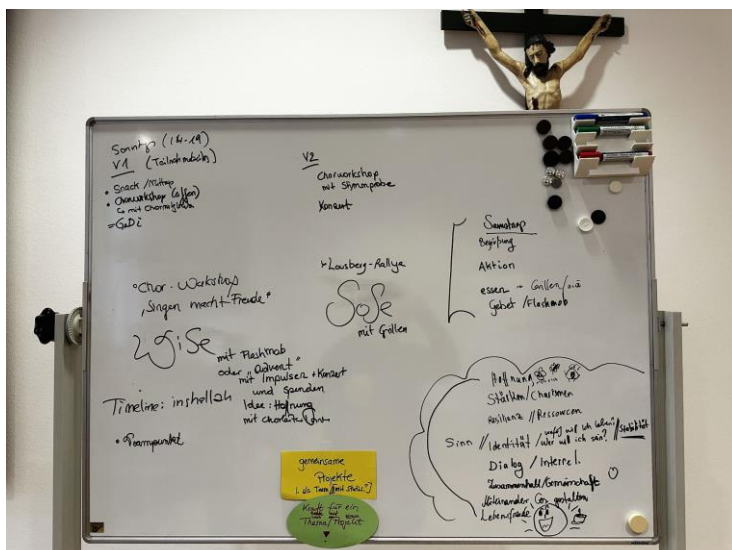 Sonntag (14-19)
V1 (Teilnahmebeitr.)
• Snack /
• Chorworkshop (offen)
↳ mit Chormitgliedern
= GeDi
V2
Chorworkshop
mit Stimmprobe
Konzert
Samstag
Begrüßung
Aktion
essen → Grillen/o.ä
Gebet / Flashmob
° Chor-Workshop
„Singen macht Freude"
WiSe
mit Flashmob
oder „Advent"
mit Impulsen + Konzert
und Spenden
Idee: Hoffnung
mit
↳ Lousberg-Rallye
SoSe
mit Grillen
Timeline: inshallah
• Teampunkt
Hoffnung, ....
Stärken/Charismen
Resilienz // Ressourcen
Sinn // Identität/ wofür will ich leben? / wer will ich sein? // Stabilität
Dialog / Interrel.
Zusammenhalt/Gemeinschaft
Miteinander gestalten
Lebensfreude
gemeinsame
Projekte
1. als Team
Kraft für ein
Thema/Projekt